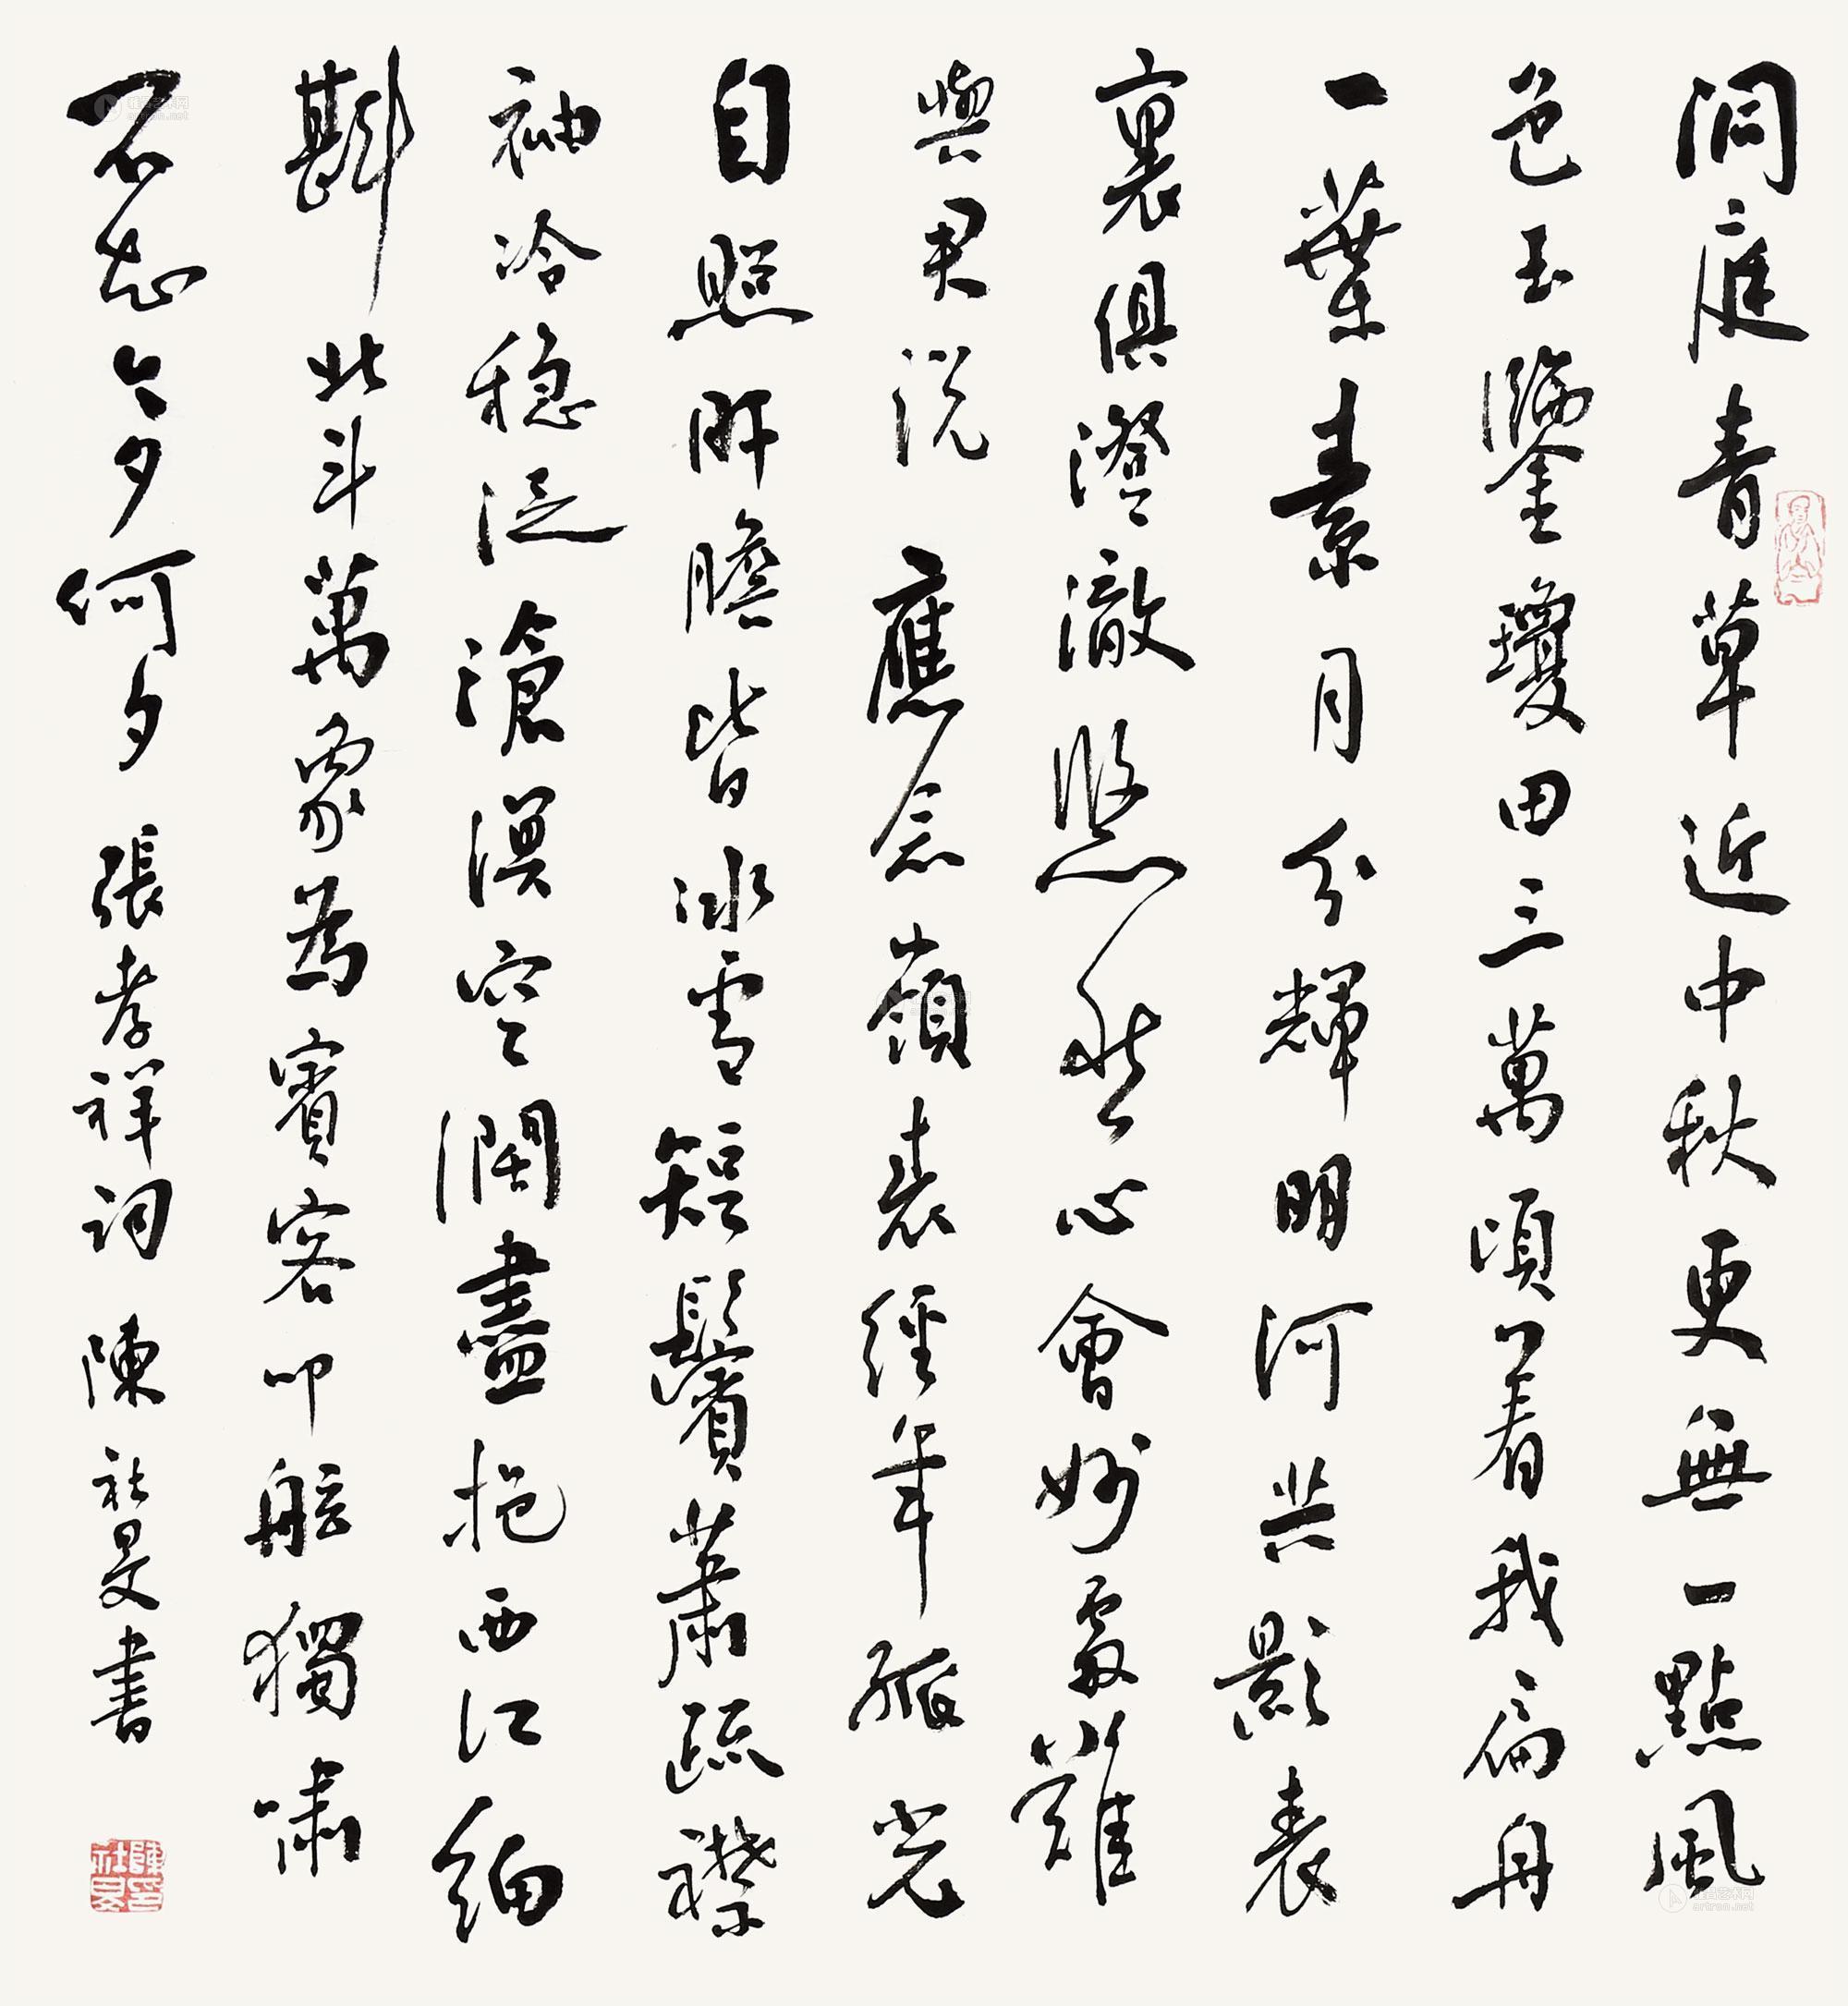 洞庭青草近中秋更無一點風
色玉鑑瓊田三萬頃着我扁舟
一葉素月分輝明河共影表
裏俱澄澈悠然心會妙處難
與君説應念嶺表經年孤光
自照肝膽皆冰雪短鬢蕭疏襟
袖冷穩泛滄溟空闊盡挹西江細
斟北斗萬象為賓客叩舷獨嘯
不知今夕何夕張孝祥詞陳社旻書